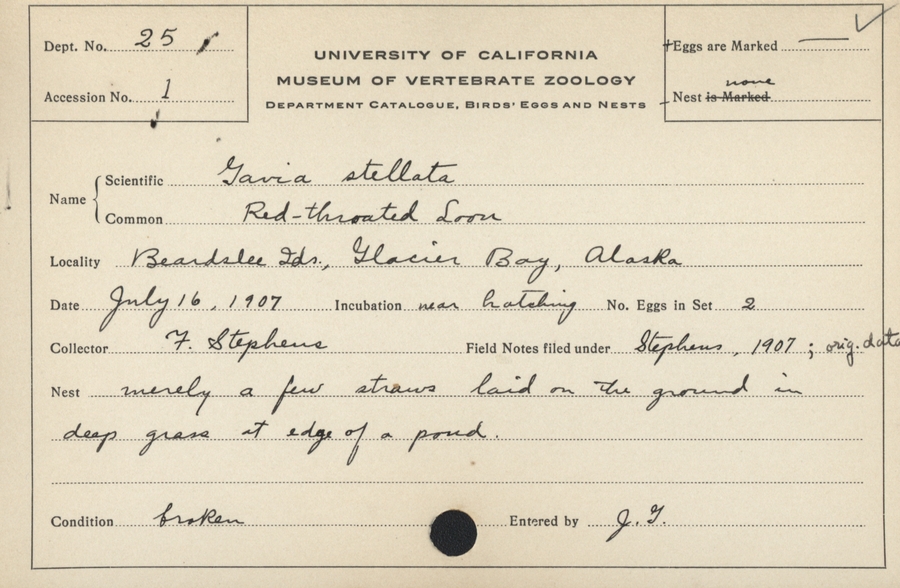 Dept. No. 25
Accession No. 1
UNIVERSITY OF CALIFORNIA
MUSEUM OF VERTEBRATE ZOOLOGY
DEPARTMENT CATALOGUE, BIRDS' EGGS AND NESTS
Eggs are Marked —
none
Nest is Marked
Name
Scientific Gavia stellata
Common Red-throated Loon
Locality Beardslee Ids., Glacier Bay, Alaska
Date July 16, 1907 Incubation near hatching No. Eggs in Set 2
Collector F. Stephens Field Notes filed under Stephens, 1907; orig. data
Nest merely a few straws laid on the ground in
deep grass at edge of a pond.
Condition broken Entered by J. G.